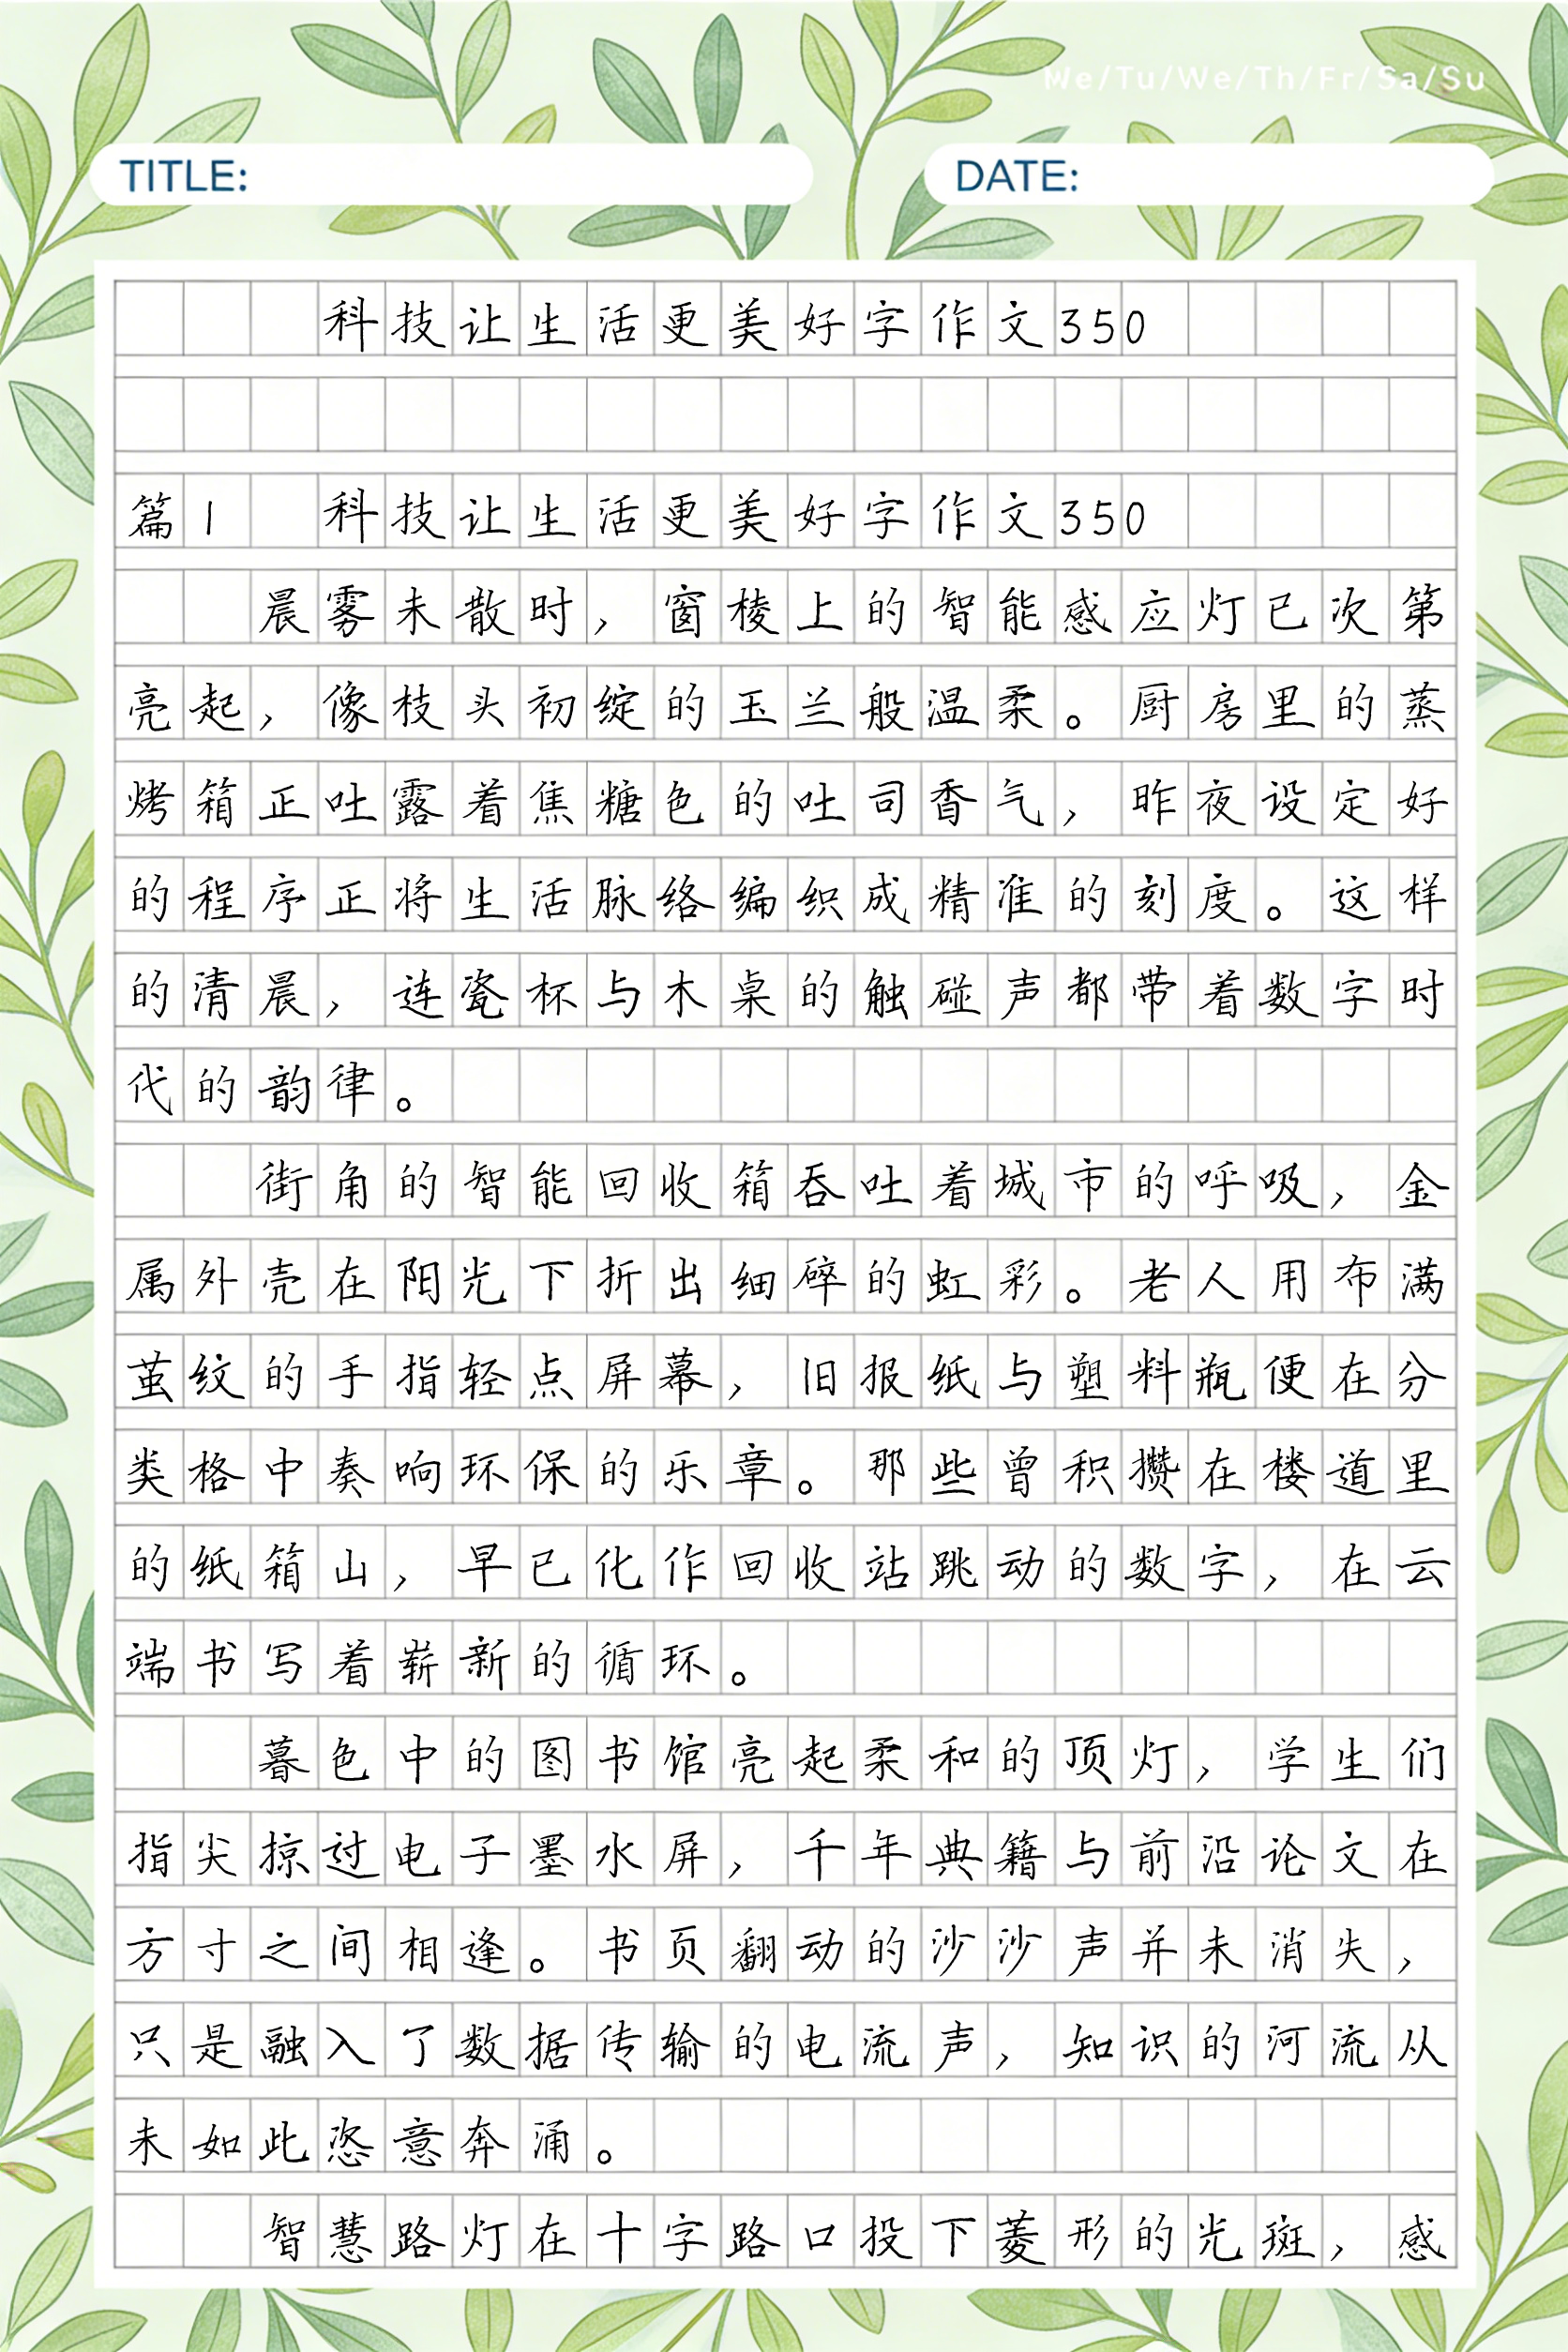 Me/Tu/We/Th/Fr/Sa/Su
TITLE: DATE:
科技让生活更美好字作文350
篇1 科技让生活更美好字作文350
晨雾未散时，窗棱上的智能感应灯已次第
亮起，像枝头初绽的玉兰般温柔。厨房里的蒸
烤箱正吐露着焦糖色的吐司香气，昨夜设定好
的程序正将生活脉络编织成精准的刻度。这样
的清晨，连瓷杯与木桌的触碰声都带着数字时
代的韵律。
街角的智能回收箱吞吐着城市的呼吸，金
属外壳在阳光下折出细碎的虹彩。老人用布满
茧纹的手指轻点屏幕，旧报纸与塑料瓶便在分
类格中奏响环保的乐章。那些曾积攒在楼道里
的纸箱山，早已化作回收站跳动的数字，在云
端书写着崭新的循环。
暮色中的图书馆亮起柔和的顶灯，学生们
指尖掠过电子墨水屏，千年典籍与前沿论文在
方寸之间相逢。书页翻动的沙沙声并未消失，
只是融入了数据传输的电流声，知识的河流从
未如此恣意奔涌。
智慧路灯在十字路口投下菱形的光斑，感